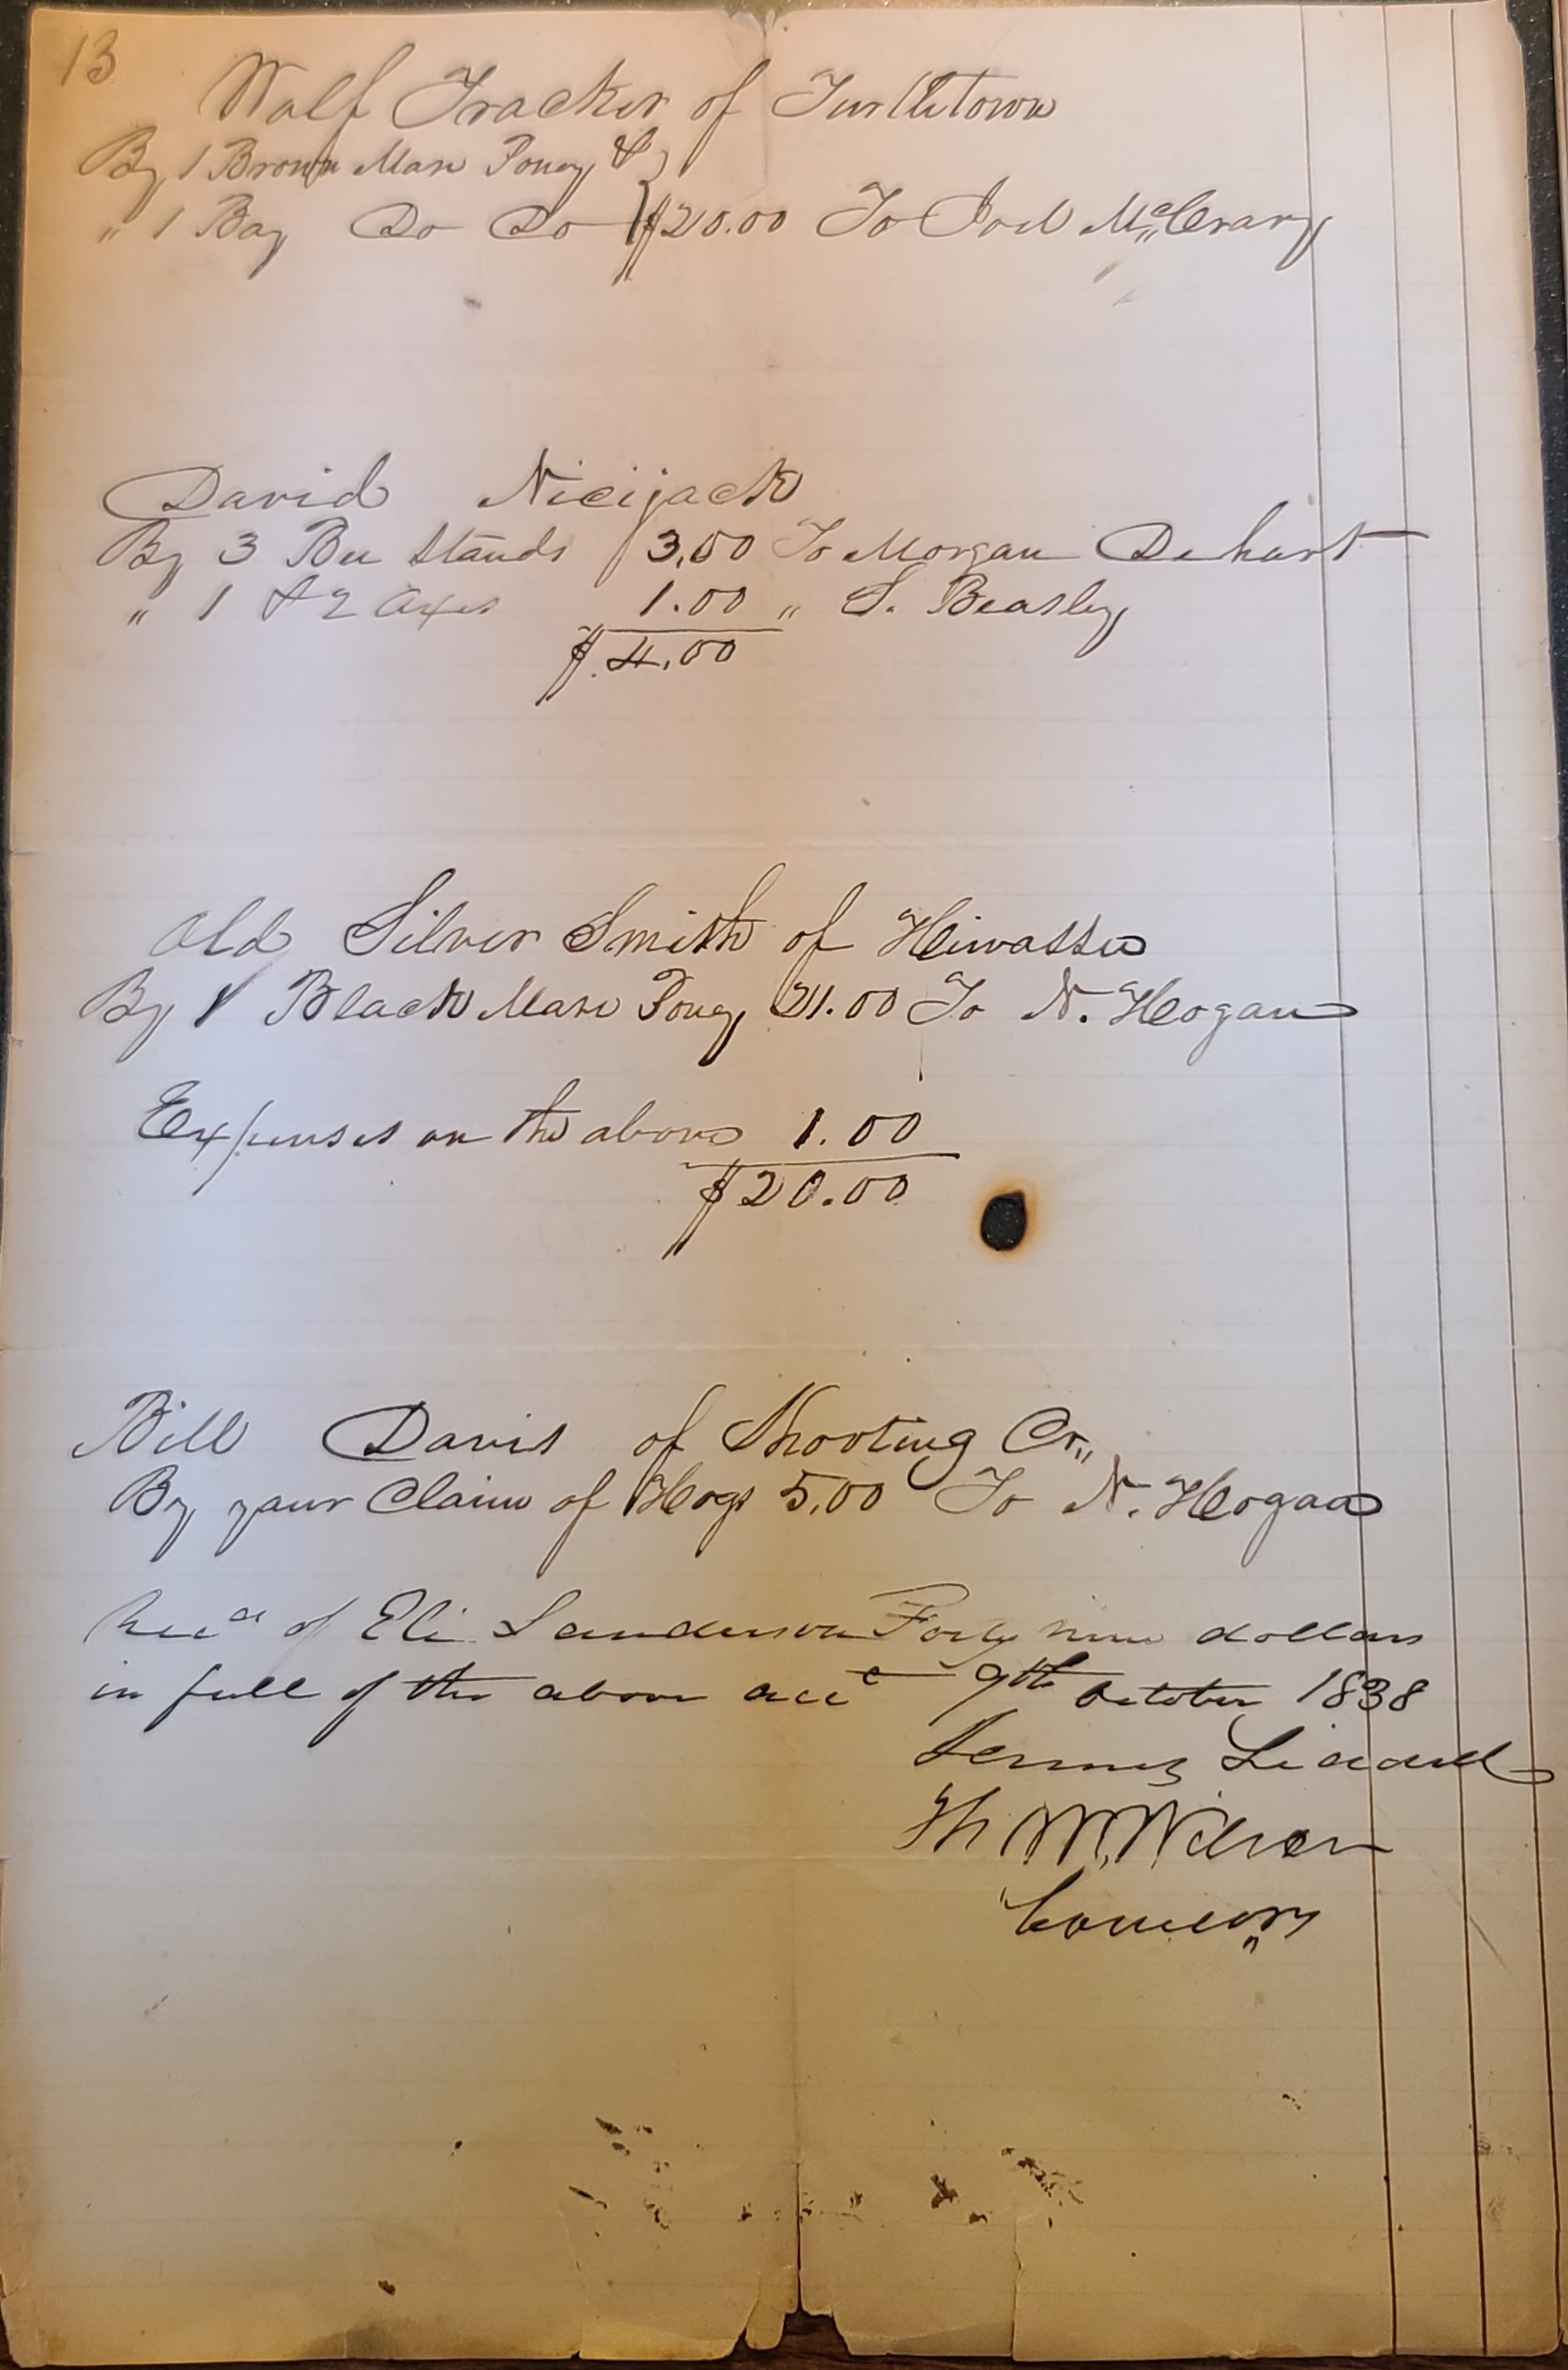 13
Wolf Tracker of Turtletown
By 1 Brown Mare Poney &
" 1 Bay Do Do $20.00 To Joel McCrary
David Nicijack
By 3 Bee Stands 3.00 To Morgan Dehart
" 1 & 2 Axes 1.00 " S. Beasley
$4.00
Old Silver Smith of Hiwassee
By 1 Black Mare Poney 21.00 To N. Hogan
Expenses on the above 1.00
$20.00
Bill Davis of Shooting Cr.,
By your Claim of Hogs 5.00 To N. Hogan
Recd of Eli Sanderson Forty nine dollars
in full of the above acct 9th October 1838
Th W. Wilson